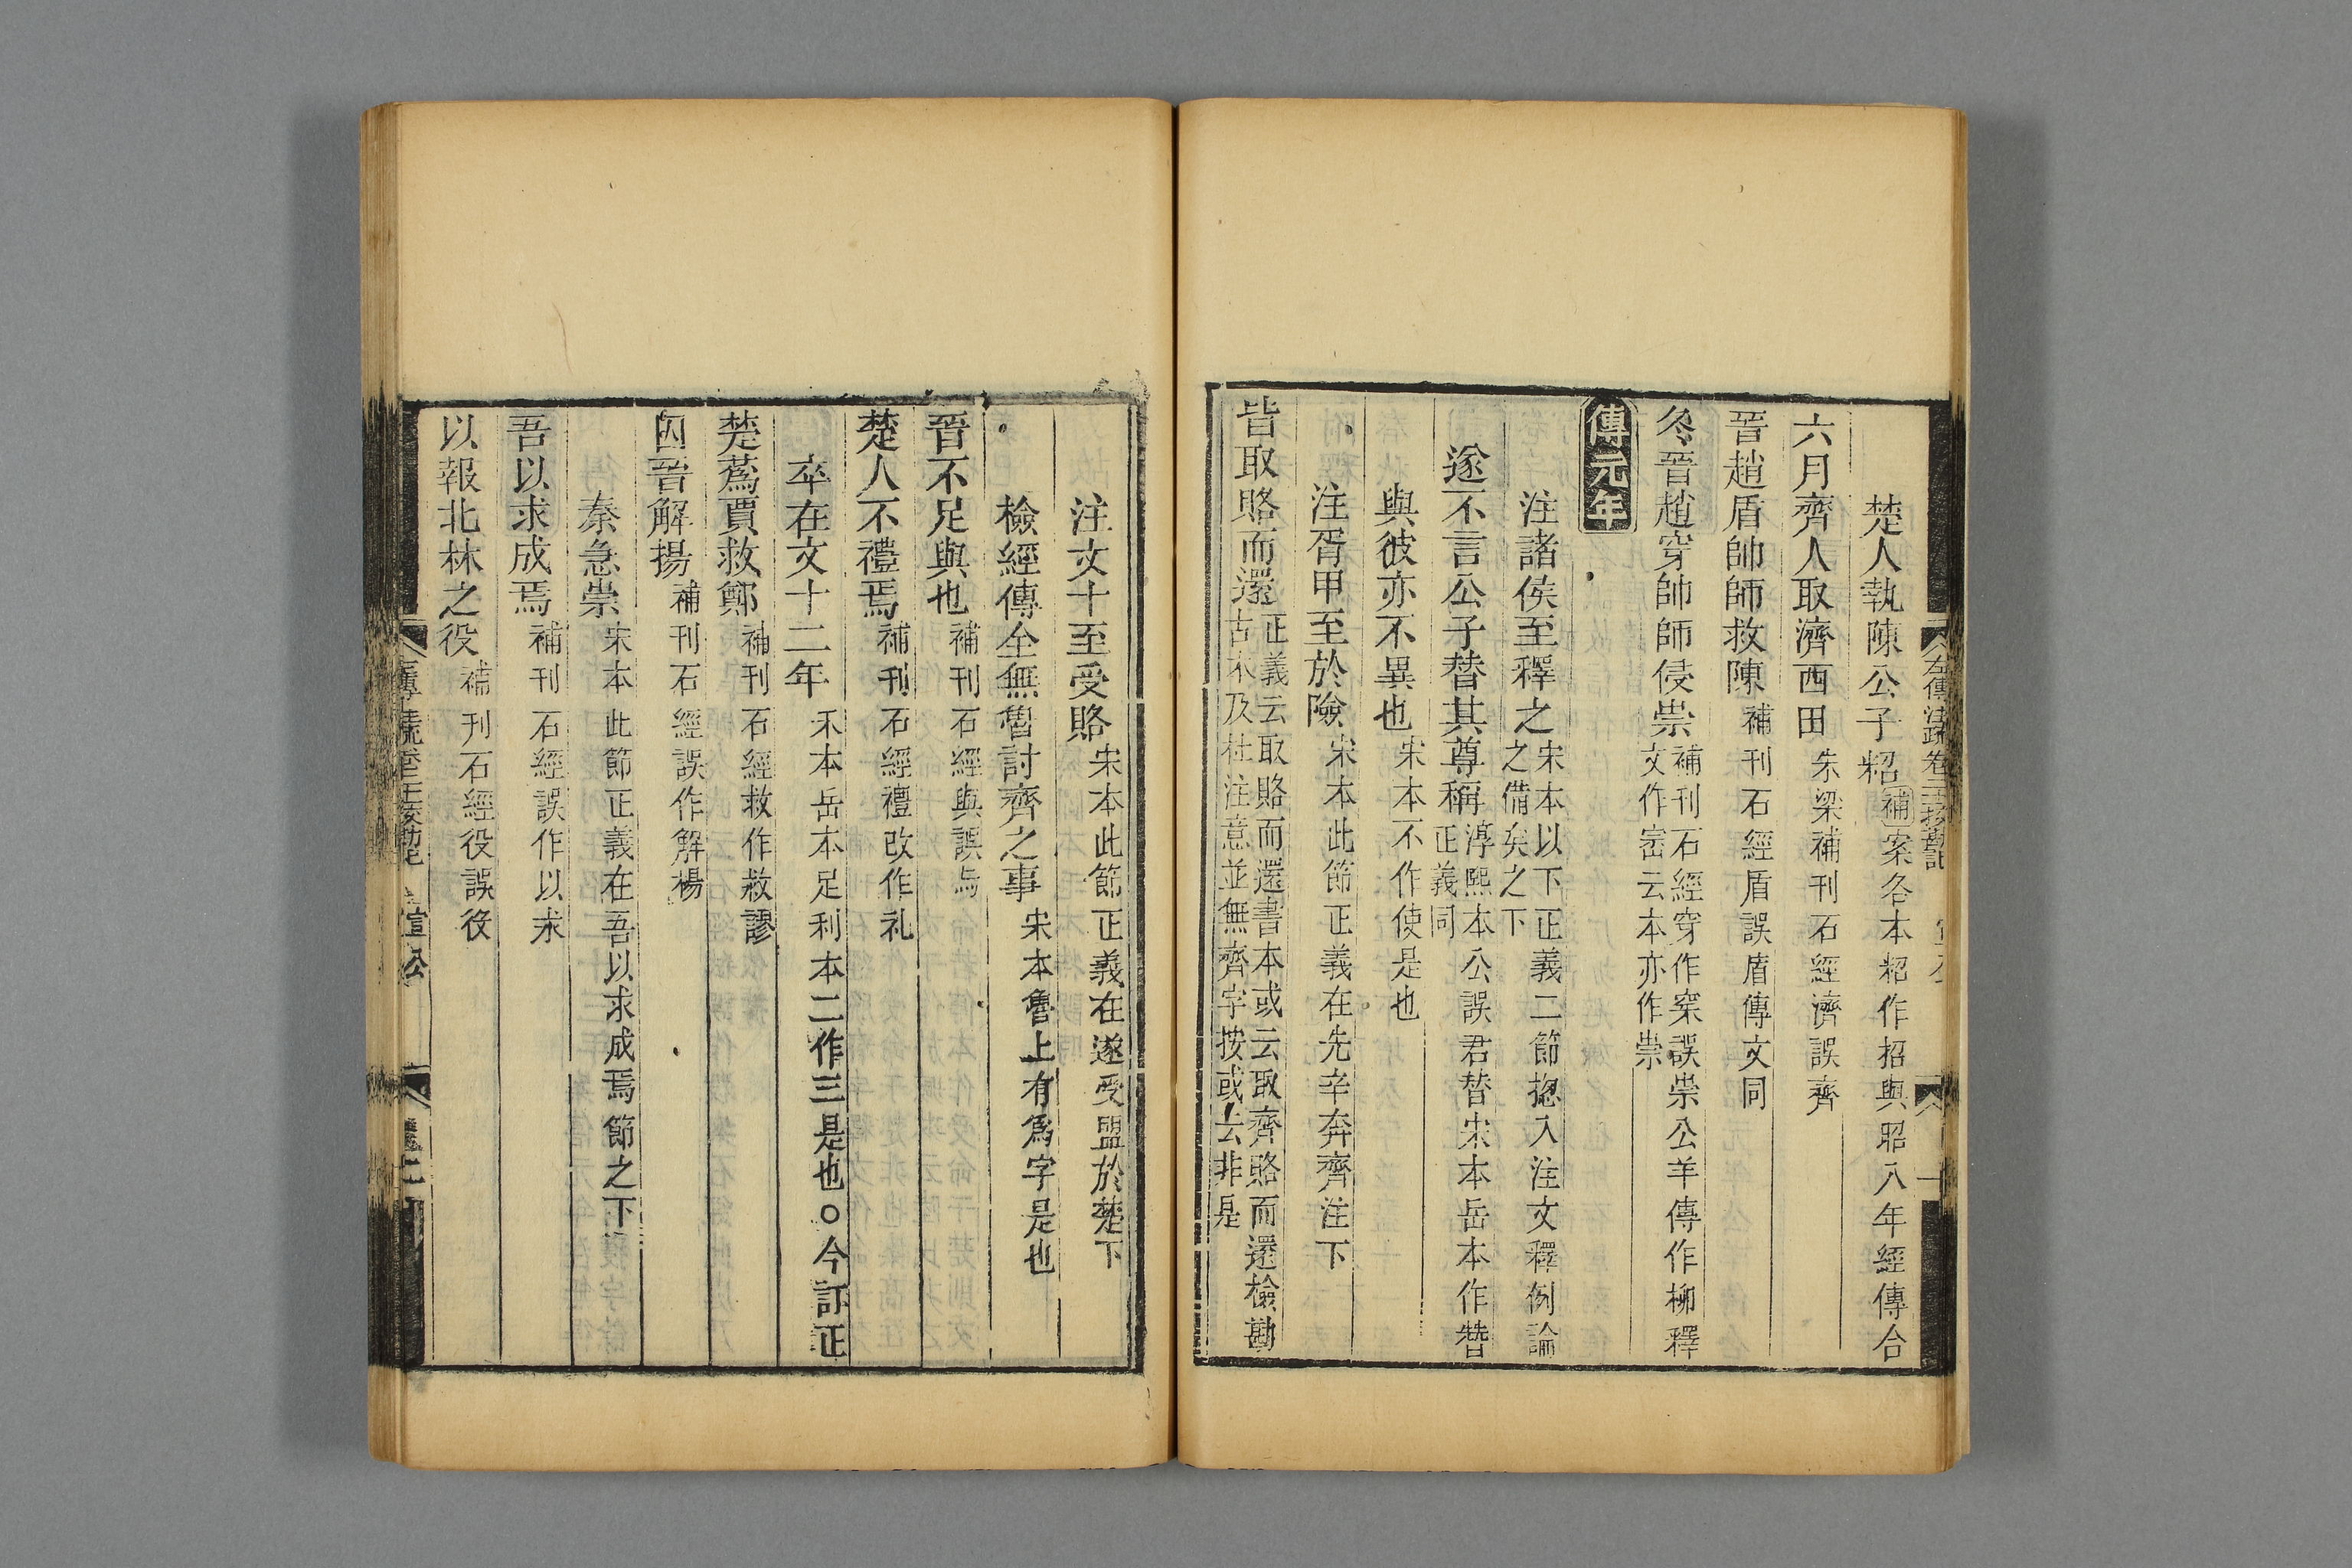 楚人執陳公子招補案各本招作招與昭八年經傳合
六月齊人取濟西田朱梁補刊石經濟誤齊
晉趙盾帥師救陳補刊石經盾誤㫪傳文同
冬晉趙穿帥師侵崇補刊石經穿作穼誤崇公羊傳作柳釋
文作崈云本亦作崇
傳元年
注諸侯至釋之宋本以下正義二節揔入注文釋例論
之備矣之下
遂不言公子替其尊稱淳熙本公誤君替宋本岳本作朁
正義同
與彼亦不異也宋本不作使是也
注胥甲至於險宋本此節正義在先辛奔齊注下
皆取賂而還正義云取賂而還書本或云取齊賂而還檢勘
古本及杜注意並無齊字按或云非是
注文十至受賂宋本此節正義在遂受盟於楚下
檢經傳全無魯討齊之事宋本魯上有爲字是也
晉不足與也補刊石經與誤与
楚人不禮焉補刊石經禮改作礼
卒在文十二年宋本岳本足利本二作三是也○今訂正
楚蒍賈救鄭補刊石經救作救謬
囚晉解揚補刊石經誤作解楊
秦急崇宋本此節正義在吾以求成焉節之下
吾以求成焉補刊石經誤作以求
以報北林之役補刊石經役誤伇
宣公